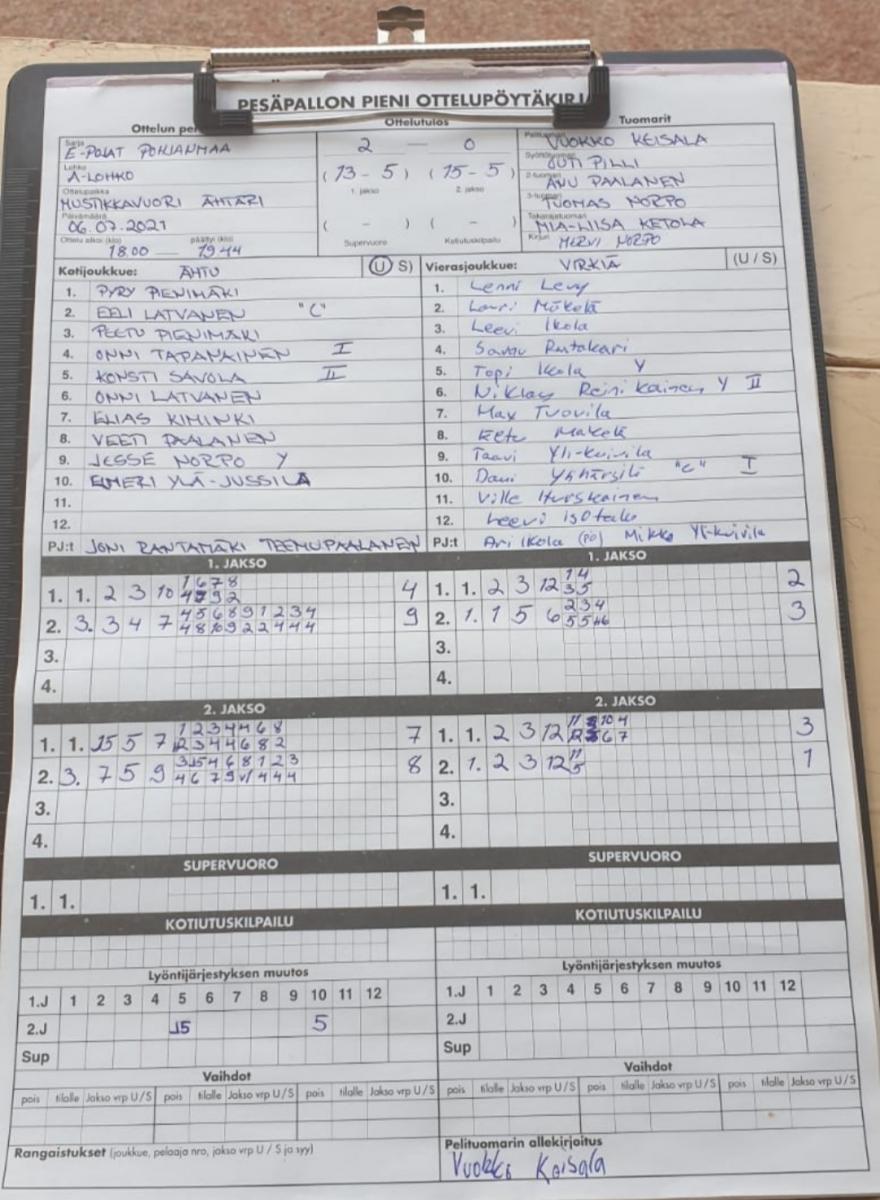 PESÄPALLON PIENI OTTELUPÖYTÄKIRJ
Ottelun per
Sarja
E-POJAT POHJANMAA
Lohko
A-LOHKO
Ottelupaikka
MUSTIKKAVUORI ÄHTÄRI
Päivämäärä
06.07.2021
Ottelu alkoi (klo) päättyi (klo)
18.00 — 19.44
Ottelutulos
2 — 0
(13 - 5) (15 - 5)
1. jakso 2. jakso
( - ) ( - )
Supervuoro Kotiutuskilpailu
Tuomarit
Pelituomari
VUOKKO KEISALA
Syöttötuomari
OUTI PILLI
2-tuomari
ANU PAALANEN
3-tuomari
TUOMAS NORPO
Takarajatuomari
MIA-LIISA KETOLA
Kirjuri
MERVI NORPO
Kotijoukkue: ÄHTU (U / S)
1. PYRY PIENIMÄKI
2. EELI LATVANEN "C"
3. PEETU PIENIMÄKI
4. ONNI TAPANAINEN I
5. KONSTI SAVOLA II
6. ONNI LATVANEN
7. ELIAS KIMINKI
8. VEETI PAALANEN
9. JESSE NORPO Y
10. ELMERI YLÄ-JUSSILA
11.
12.
PJ:t JONI RANTAMÄKI TEEMU PAALANEN
Vierasjoukkue: VIRKIÄ (U / S)
1. Lenni Levy
2. Lauri Mäkelä
3. Leevi Ikola
4. Rintakari
5. Topi Ikola Y
6. Niklas Reinikainen Y II
7. Max Tuovila
8. Eetu Mäkelä
9. Taavi Yli-Kuivila
10. "C" I
11. Ville Hurskainen
12. Leevi Isotalo
PJ:t Ari Ikola (PJ) Mikko Yli-Kuivila
1. JAKSO
1. 1. 2 3 10 1 6 7 8 4
2. 3. 3 4 7 4 5 6 8 9 1 2 3 4 9
4 8 10 9 2 2 4 4 4
3.
4.
1. JAKSO
1. 1. 2 3 12 1 4 2
3 5
2. 1. 1 5 6 2 3 4 3
3.
4.
2. JAKSO
1. 1. 15 5 7 1 2 3 4 4 6 8 7
12 3 4 4 6 8 2
2. 3. 7 5 9 3 15 4 6 8 1 2 3 8
3.
4.
2. JAKSO
1. 1. 2 3 12 3
2. 1. 2 3 12 11 1
5
3.
4.
SUPERVUORO
1. 1.
SUPERVUORO
1. 1.
KOTIUTUSKILPAILU
KOTIUTUSKILPAILU
Lyöntijärjestyksen muutos
1.J 1 2 3 4 5 6 7 8 9 10 11 12
2.J 15 5
Sup
Lyöntijärjestyksen muutos
1.J 1 2 3 4 5 6 7 8 9 10 11 12
2.J
Sup
Vaihdot
pois tilalle Jakso vrp U / S pois tilalle Jakso vrp U / S pois tilalle Jakso vrp U / S
Vaihdot
pois tilalle Jakso vrp U / S pois tilalle Jakso vrp U / S pois tilalle Jakso vrp U / S
Rangaistukset (joukkue, pelaaja nro, jakso vrp U / S ja syy)
Pelituomarin allekirjoitus
Vuokko Keisala